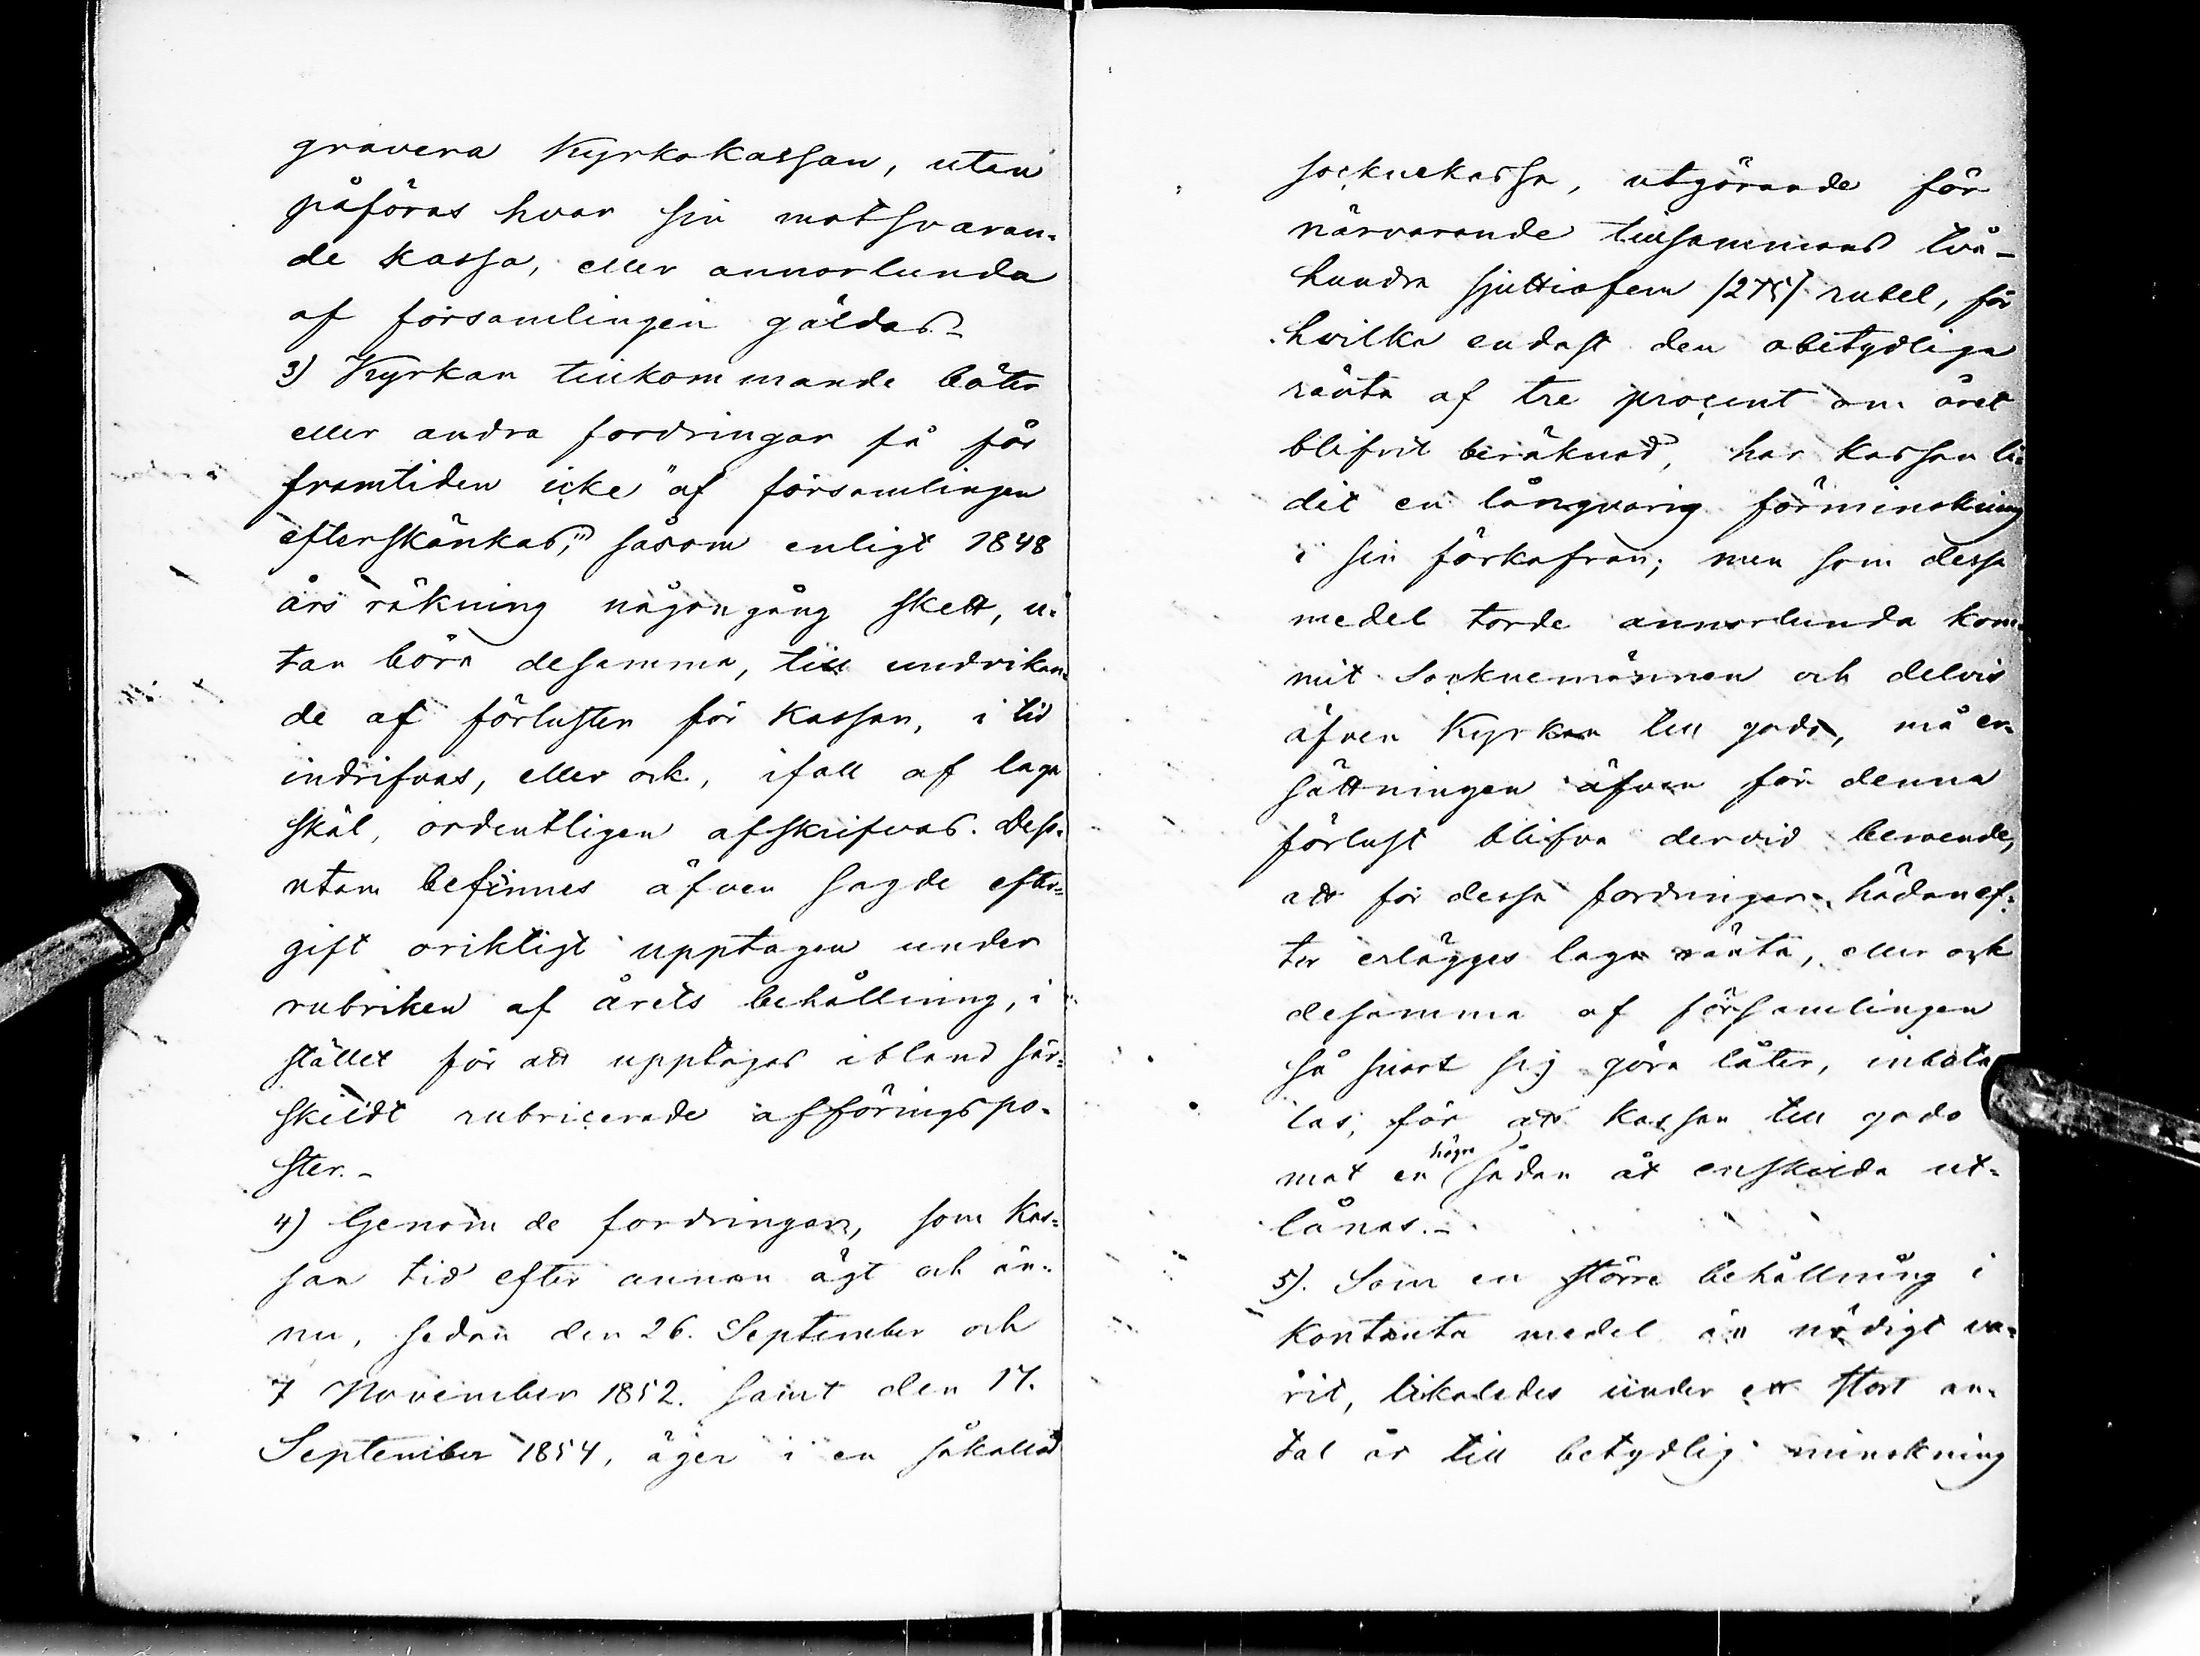 gravera Kyrkokassan, utan
påföras hvar sin motsvaran-
de kassa, eller annorlunda
af församlingen gäldas.-
3) Kyrkan tillkommande böter
eller andra fordringar få för
framtiden icke "af församlingen
efterskänkas," såsom enligt 1848
års räkning någongång skett, u-
tan böra desamma, till undvikan-
de af förluster för kassan, i tid
indrifvas, eller ock, ifall af laga
skäl, ordentligen afskrifvas. Dess-
utom befinnes äfven sagde efter-
gift oriktigt upptagen under
rubriken af årets behållning, i
stället för att upptagas ibland sär-
skildt rubricerade afföringspo-
ster.-
4) Genom de fordringar, som kas-
san tid efter annan ägt och än-
nu, sedan den 26. September och
7 November 1852. samt den 17.
September 1854, äger i en såkallad
socknekassa, utgörande för
närvarande tillsammans två-
hundra sjuttiofem /275/ rubel, för
hvilka endast den obetydliga
ränta af tre procent om året
blifvit beräknad, har kassan li-
dit en långvarig förminskning
i sin förkofran; men som dessa
medel torde annorlunda kom-
mit Socknemännen och delvis
äfven Kyrkan till godo, må er-
sättningen äfven för denna
förlust blifva dervid beroende,
att för dessa fordringar hädanef-
ter erlägges laga ränta, eller ock
desamma af församlingen
så snart sig göra låter, inbeta
las, för att kassan till godo
mot en högre sådan åt enskilda ut-
lånas.-
5). Som en större behållning i
kontanta medel än nödigt va-
rit, likaledes under ett stort an-
tal år till betydlig minskning